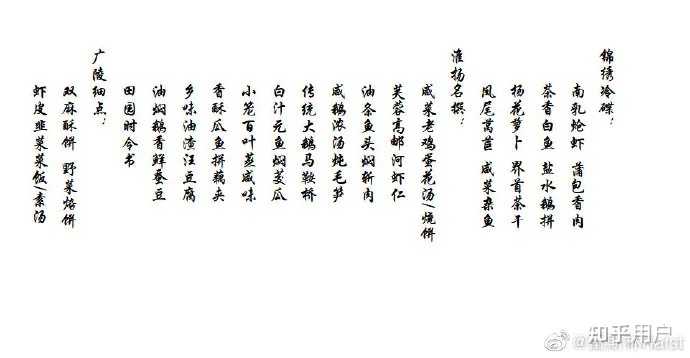 锦绣冷碟：
南乳炝虾 蒲包香肉
茶香白鱼 盐水鹅拼
杨花萝卜 界首茶干
凤尾莴苣 咸菜杂鱼
淮扬名撰：
咸菜老鸡蛋花汤/烧饼
芙蓉高邮河虾仁
油条鱼头焖斩肉
咸鹅浓汤炖毛笋
传统大鹅马鞍桥
白汁元鱼焖菱瓜
小笼百叶蒸咸味
香酥瓜鱼拼藕夹
乡味油渣汪豆腐
油焖鹅香鲜蚕豆
田园时令书
广陵细点：
双麻酥饼 野菜烙饼
虾皮韭菜菜饭/素汤
知乎用户